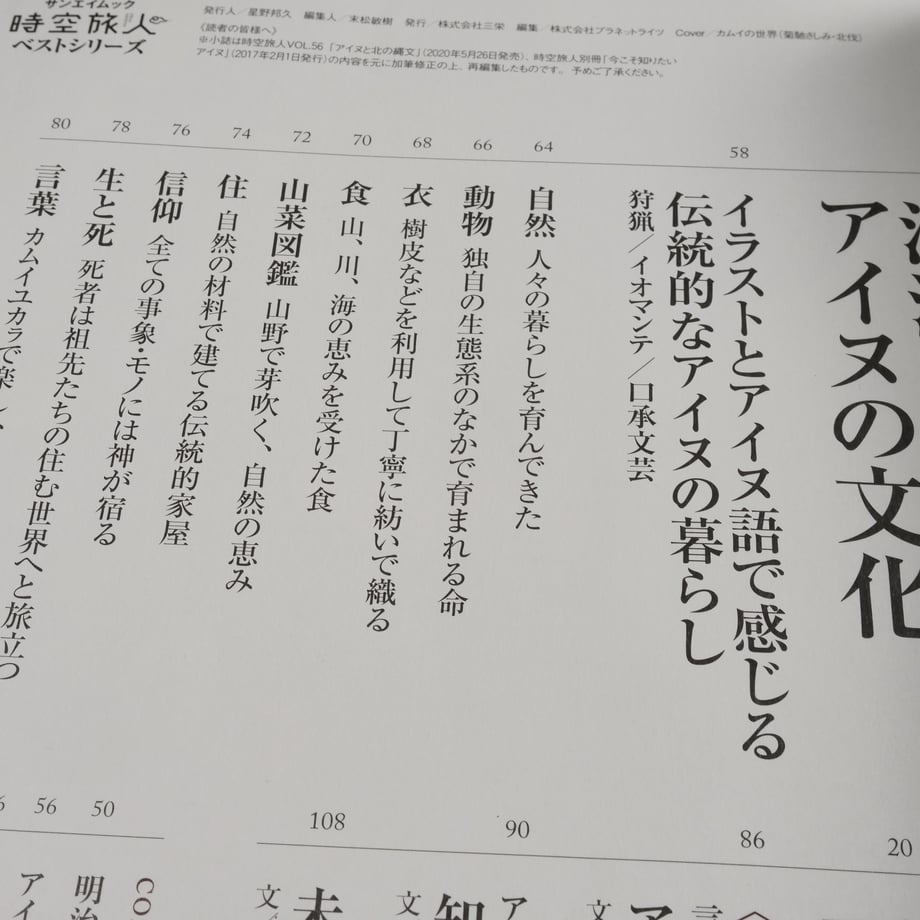 サンエイムック
時空旅人
ベストシリーズ
発行人／星野邦久 編集人／末松敏樹 発行／株式会社三栄 編集／株式会社プラネットライツ Cover／カムイの世界(菊馳さしみ・北伐)
《読者の皆様へ》
※小誌は時空旅人VOL.56「アイヌと北の縄文」(2020年5月26日発売)、時空旅人別冊「今こそ知りたい
アイヌ」(2017年2月1日発行)の内容を元に加筆修正の上、再編集したものです。予めご了承ください。
アイヌの文化
58
イラストとアイヌ語で感じる
伝統的なアイヌの暮らし
狩猟／イオマンテ／口承文芸
64
自然 人々の暮らしを育んできた
66
動物 独自の生態系のなかで育まれる命
68
衣 樹皮などを利用して丁寧に紡いで織る
70
食 山、川、海の恵みを受けた食
72
山菜図鑑 山野で芽吹く、自然の恵み
74
住 自然の材料で建てる伝統的家屋
76
信仰 全ての事象・モノには神が宿る
78
生と死 死者は祖先たちの住む世界へと旅立つ
80
言葉 カムイユカラで楽し
20
86
ア
90
ア
知
文
108
未
文
50
CO
明治
56
アイ